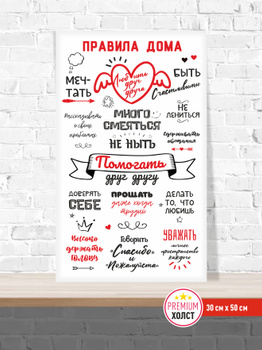 ПРАВИЛА ДОМА
МЕЧ-
ТАТЬ
Любить
друг
друга
БЫТЬ
Счастливыми
Рассказывать
о своих
МНОГО
СМЕЯТЬСЯ
НЕ НЫТЬ
НЕ
ЛЕНИТЬСЯ
Сдерживать
обещания
Помогать
друг другу
ДОВЕРЯТЬ
СЕБЕ
ПРОЩАТЬ
даже когда
трудно
ДЕЛАТЬ
ТО, ЧТО
ЛЮБИШЬ
Высоко
держать
голову
Говорить
"Спасибо"
и
"Пожалуйста"
УВАЖАТЬ
личное
пространство
каждого
PREMIUM
ХОЛСТ
30 см х 50 см